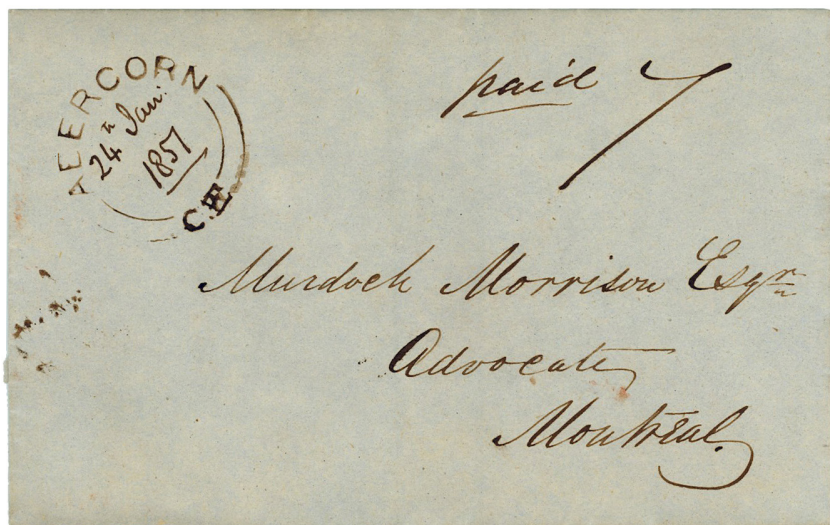 AEERCORN
24th Jan:
1851
C.E
paid 7
Murdoch Morrison Esqr
Advocate
Montreal.